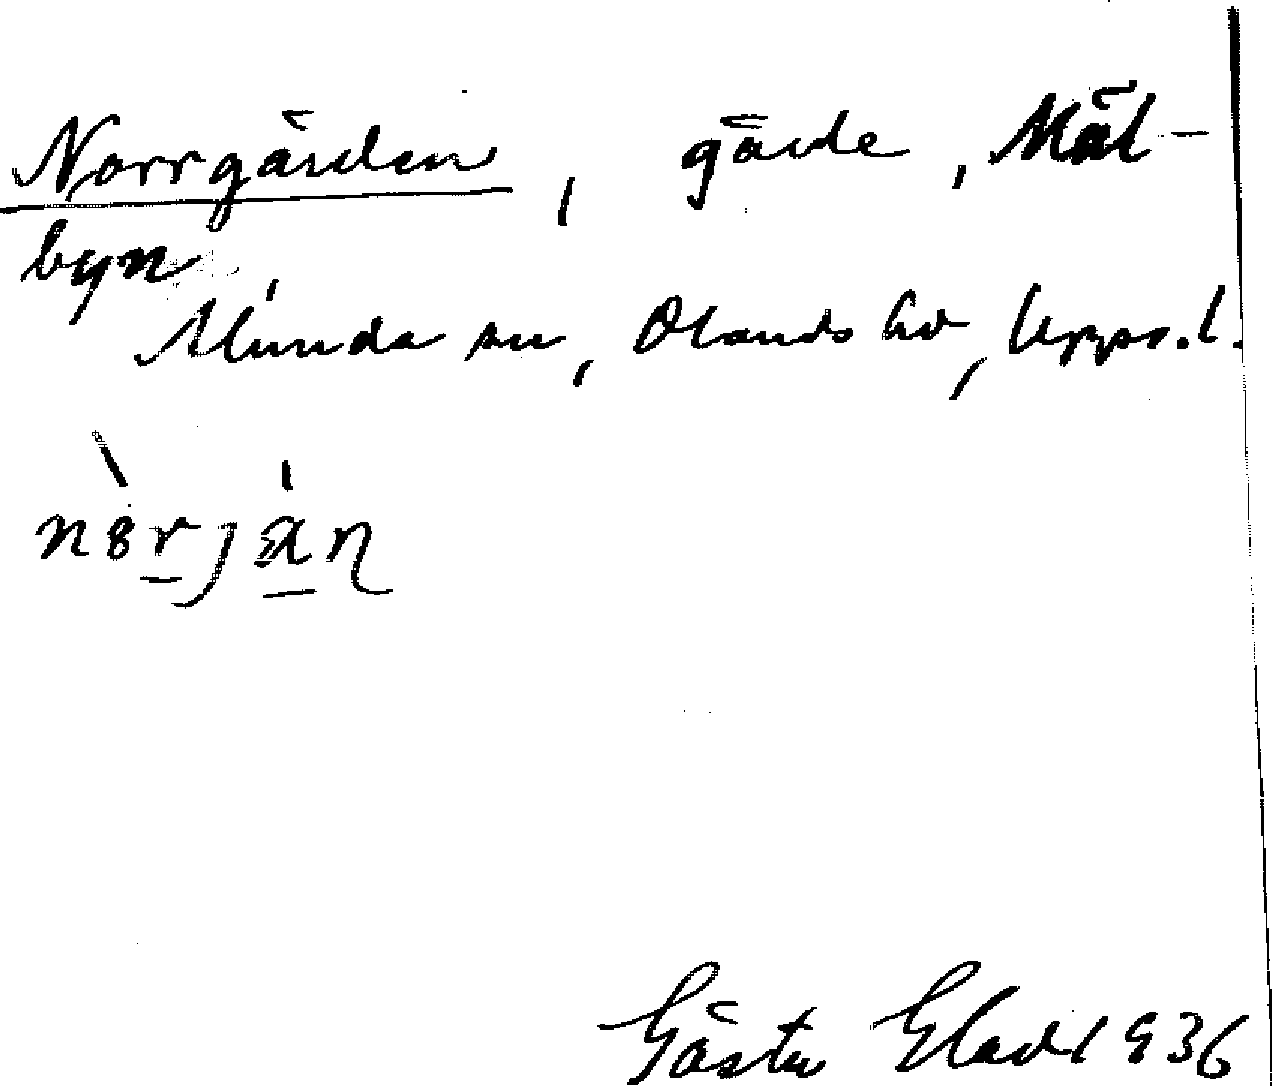 Norrgården, gärde, Mål-
byn
Alunda sn, Olands hd, Upps.l.
nòrján
Gösta Elad 1936